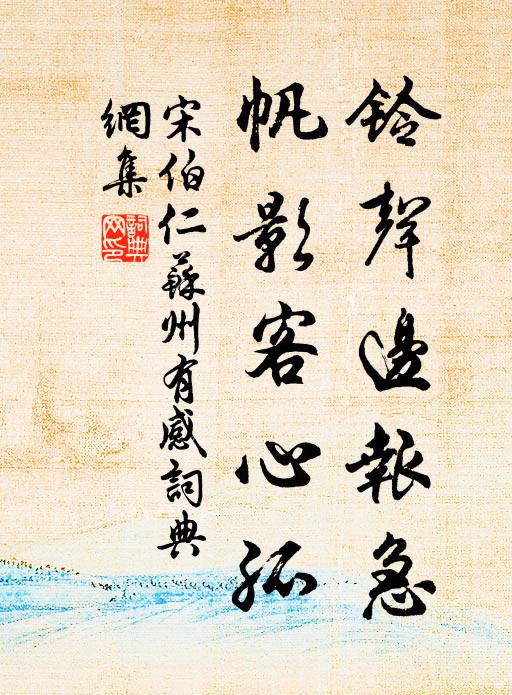 鈴聲邊報急
帆影客心孤
宋伯仁蘇州有感詞典
網集
詞典網印